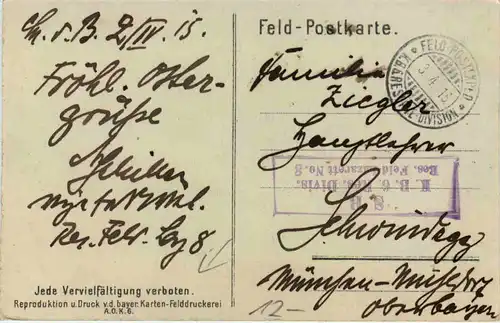 Ch. d. B. 2/IV. 15.
Fröhl. Oster-
grüße
Res. Feld. Laz 8
Jede Vervielfältigung verboten.
Reproduktion u. Druck v. d. bayer. Karten-Felddruckerei
A.O.K.6.
Feld-Postkarte.
FELD-POSTEXP.
K.B.6.RESERVE-DIVISION
3.4.15
Familie
Ziegler
Hauptlehrer
S. B.
K. B. 6. Res. Divis.
Res. Feld Lazarett No. 8
Schwindegg
München-Mühldorf
Oberbayern
12-